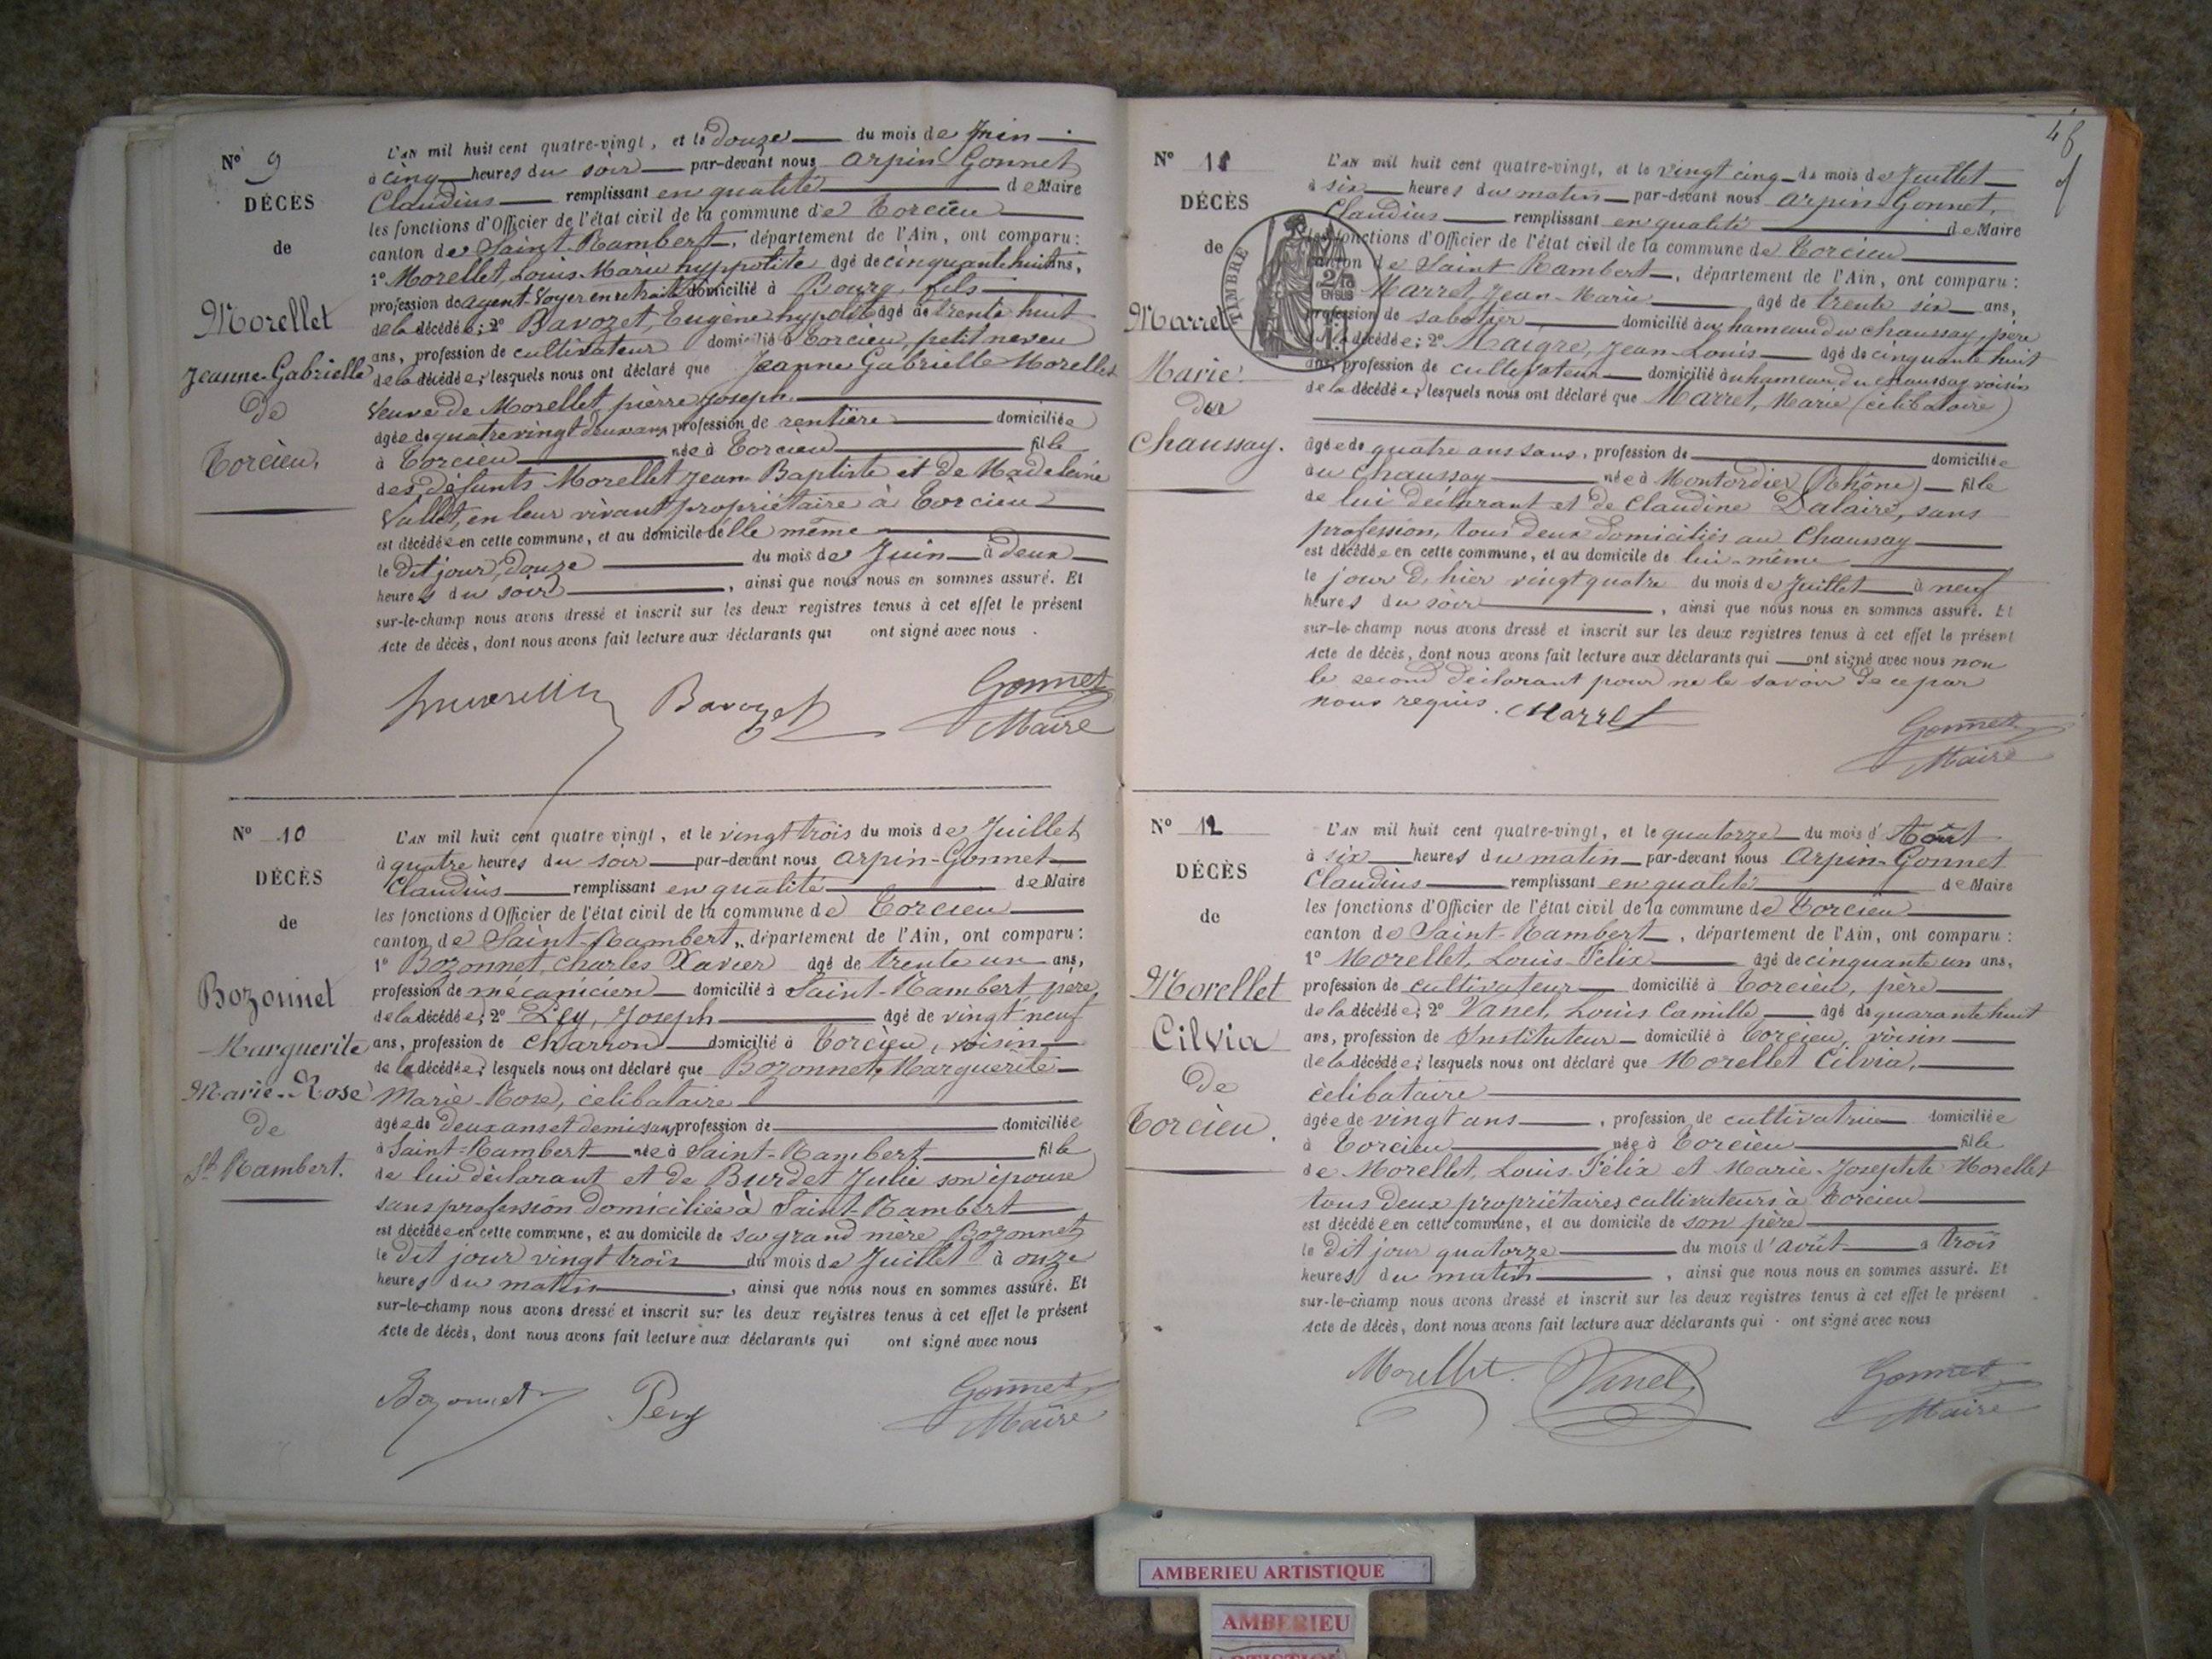 Nº 9
DÉCÈS
de
Morellet
Jeanne-Gabrielle
de
Torcieu.
L'AN mil huit cent quatre-vingt, et le Douze du mois de Juin
à cinq heures du soir par-devant nous Arpin Gonnet
Claudius remplissant en qualité de Maire
les fonctions d'Officier de l'état civil de la commune de Torcieu
canton de Saint-Rambert, département de l'Ain, ont comparu :
1º Morellet, Louis-Marie hyppolite âgé de cinquante huit ans,
profession de agent-Voyer en retraite domicilié à Bourg, fils
de la décédée ; 2º Bavozet, Eugène hypolite âgé de trente huit
ans, profession de cultivateur domicilié à Torcieu, petit neveu
de la décédée, lesquels nous ont déclaré que Jeanne Gabrielle Morellet
Veuve de Morellet, pierre joseph
âgée de quatre vingt deux ans profession de rentière domiciliée
à Torcieu née à Torcieu fille
des défunts Morellet Jean-Baptiste et de Madeleine
Vallet, en leur vivant propriétaire à Torcieu
est décédée en cette commune, et au domicile delle même
le dit jour, douze du mois de Juin à deux
heures du soir, ainsi que nous nous en sommes assuré. Et
sur-le-champ nous avons dressé et inscrit sur les deux registres tenus à cet effet le présent
Acte de décès, dont nous avons fait lecture aux déclarants qui ont signé avec nous.
Bavozet Gonnet
Maire
Nº 10
DÉCÈS
de
Bozonnet
Marguerite
Marie-Rose
de
St Rambert.
L'AN mil huit cent quatre vingt, et le vingt trois du mois de Juillet
à quatre heures du soir par-devant nous Arpin-Gonnet
Claudius remplissant en qualité de Maire
les fonctions d'Officier de l'état civil de la commune de Torcieu
canton de Saint-Rambert, département de l'Ain, ont comparu :
1º Bozonnet, Charles Xavier âgé de trente un ans,
profession de mécanicien domicilié à Saint-Rambert, père
de la décédée ; 2º Pey, Joseph âgé de vingt neuf
ans, profession de charron domicilié à Torcieu, voisin
de la décédée ; lesquels nous ont déclaré que Bozonnet, Marguerite
Marie-Rose, célibataire
âgée de deux ans et demi sans profession de domiciliée
à Saint-Rambert née à Saint-Rambert fille
de lui déclarant et de Burdet Julie son épouse
sans profession domiciliée à Saint-Rambert
est décédée en cette commune, et au domicile de sa grand mère Bozonnet
le dit jour vingt trois du mois de Juillet à onze
heures du matin, ainsi que nous nous en sommes assuré. Et
sur-le-champ nous avons dressé et inscrit sur les deux registres tenus à cet effet le présent
Acte de décès, dont nous avons fait lecture aux déclarants qui ont signé avec nous
Bozonnet Pey Gonnet
Maire
Nº 11
DÉCÈS
de
Marret
Marie
du
Chaussay.
TIMBRE
L'AN mil huit cent quatre-vingt, et le vingt cinq du mois de Juillet
à six heures du matin par-devant nous Arpin-Gonnet,
Claudius remplissant en qualité de Maire
les fonctions d'Officier de l'état civil de la commune de Torcieu
canton de Saint-Rambert, département de l'Ain, ont comparu :
Marret, Jean-Marie âgé de trente six ans,
profession de sabotier, domicilié au hameau du chaussay, père
de la décédée ; 2º Maigre, Jean-Louis âgé de cinquante huit
ans, profession de cultivateur domicilié au hameau du chaussay voisin
de la décédée ; lesquels nous ont déclaré que Marret, Marie (célibataire)
âgée de quatre ans sans, profession de domiciliée
au Chaussay née à Montordier (Rhône) fille
de lui déclarant et de Claudine Dalaire, sans
profession, tous deux domiciliés au Chaussay
est décédée en cette commune, et au domicile de lui-même
le jour d'hier vingt quatre du mois de Juillet à neuf
heures du soir, ainsi que nous nous en sommes assuré. Et
sur-le-champ nous avons dressé et inscrit sur les deux registres tenus à cet effet le présent
Acte de décès, dont nous avons fait lecture aux déclarants qui ont signé avec nous non
le second déclarant pour ne le savoir de ce par
nous requis. Marret
Gonnet
Maire
Nº 12
DÉCÈS
de
Morellet
Cilvia
de
Torcieu.
L'AN mil huit cent quatre-vingt, et le quatorze du mois d'Août
à six heures du matin par-devant nous Arpin-Gonnet
Claudius remplissant en qualité de Maire
les fonctions d'Officier de l'état civil de la commune de Torcieu
canton de Saint-Rambert, département de l'Ain, ont comparu :
1º Morellet, Louis-Félix âgé de cinquante un ans,
profession de cultivateur domicilié à Torcieu, père
de la décédée ; 2º Vanel, Louis Camille âgé de quarante huit
ans, profession de Instituteur domicilié à Torcieu, voisin
de la décédée ; lesquels nous ont déclaré que Morellet Cilvia,
célibataire
âgée de vingt ans, profession de cultivatrice domiciliée
à Torcieu née à Torcieu fille
de Morellet, Louis-Félix et Marie-Josephte Morellet
tous deux propriétaires cultivateurs à Torcieu
est décédée en cette commune, et au domicile de son père
le dit jour quatorze du mois d'août à trois
heures du matin, ainsi que nous nous en sommes assuré. Et
sur-le-champ nous avons dressé et inscrit sur les deux registres tenus à cet effet le présent
Acte de décès, dont nous avons fait lecture aux déclarants qui ont signé avec nous
Morellet Vanel Gonnet
Maire
AMBERIEU ARTISTIQUE
AMBERIEU
ARTISTIQUE